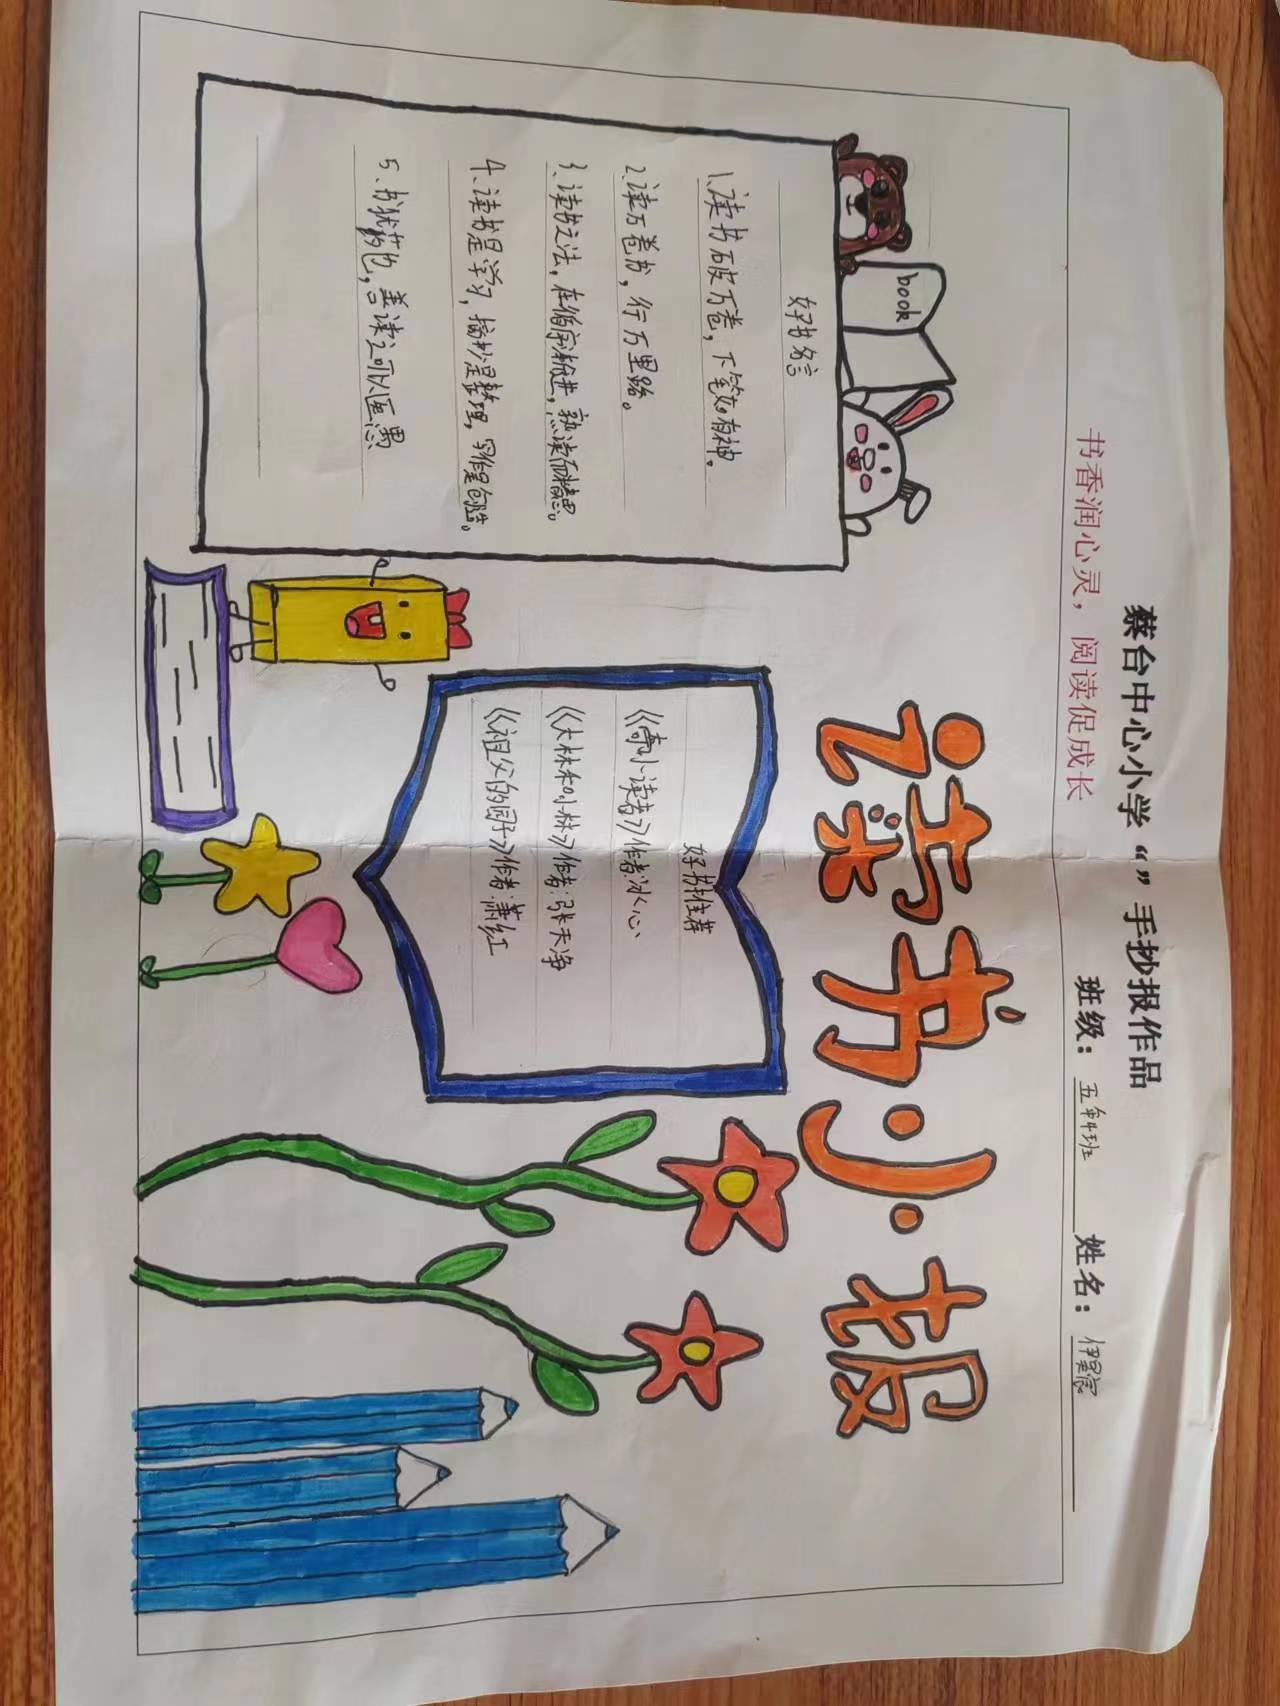 蔡台中心小学“”手抄报作品
书香润心灵，阅读促成长
班级：五年4班 姓名：伊
读书小报
book
好书名言
1、读书破万卷，下笔如有神。
2、读万卷书，行万里路。
3、读书之法，在循序渐进，熟读而精思。
4、读书是学习，摘抄是整理，写作是创造。
5、书犹药也，善读之可以医愚
好书推荐
《寄小读者》作者：冰心
《大林和小林》作者：张天净
《祖父的园子》作者：萧红